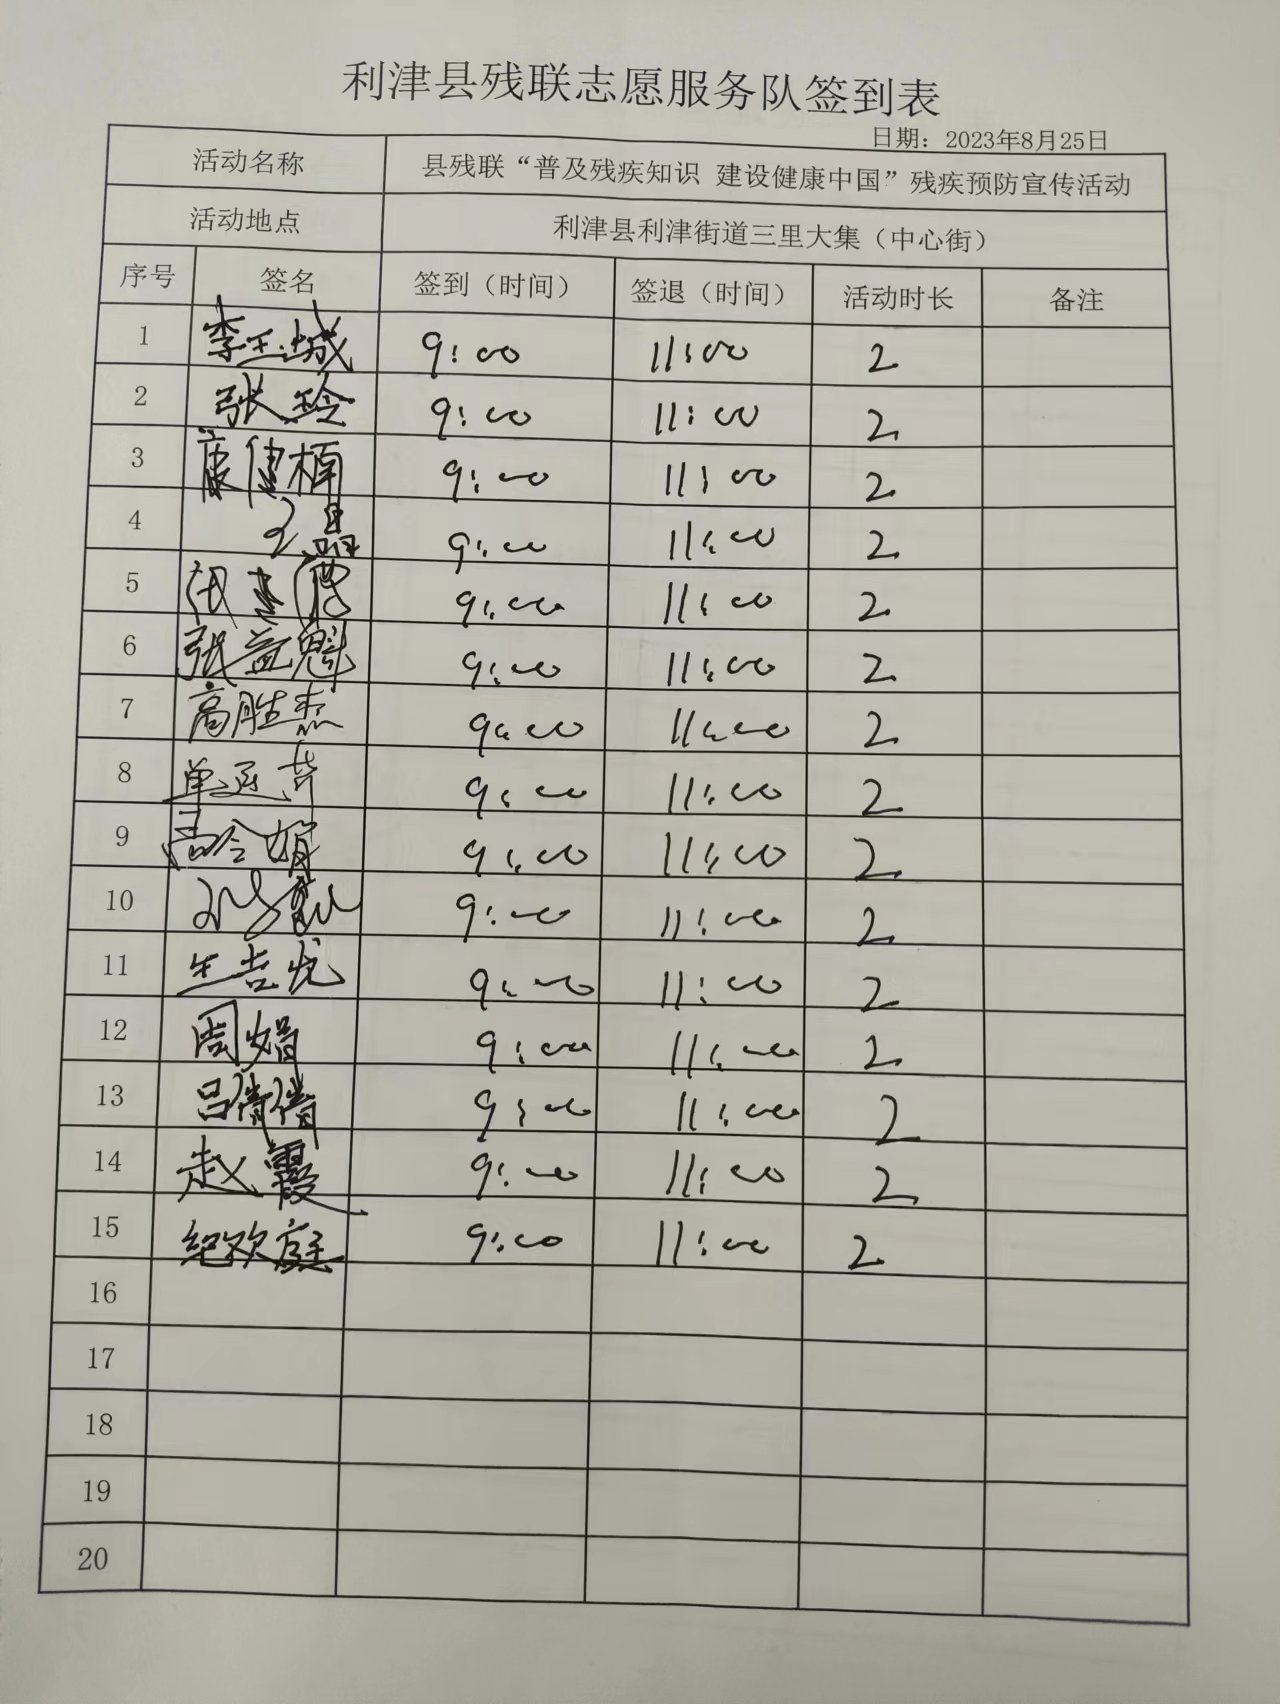 利津县残联志愿服务队签到表
日期：2023年8月25日
活动名称 县残联“普及残疾知识 建设健康中国”残疾预防宣传活动
活动地点 利津县利津街道三里大集（中心街）
序号 签名 签到（时间） 签退（时间） 活动时长 备注
1 李玉城 9:00 11:00 2
2 张玲 9:00 11:00 2
3 康健楠 9:00 11:00 2
4 王晶 9:00 11:00 2
5 9:00 11:00 2
6 张益魁 9:00 11:00 2
7 高胜杰 9:00 11:00 2
8 9:00 11:00 2
9 高令娟 9:00 11:00 2
10 9:00 11:00 2
11 生吉优 9:00 11:00 2
12 周娟 9:00 11:00 2
13 吕倩倩 9:00 11:00 2
14 赵霞 9:00 11:00 2
15 纪欢庭 9:00 11:00 2
16
17
18
19
20